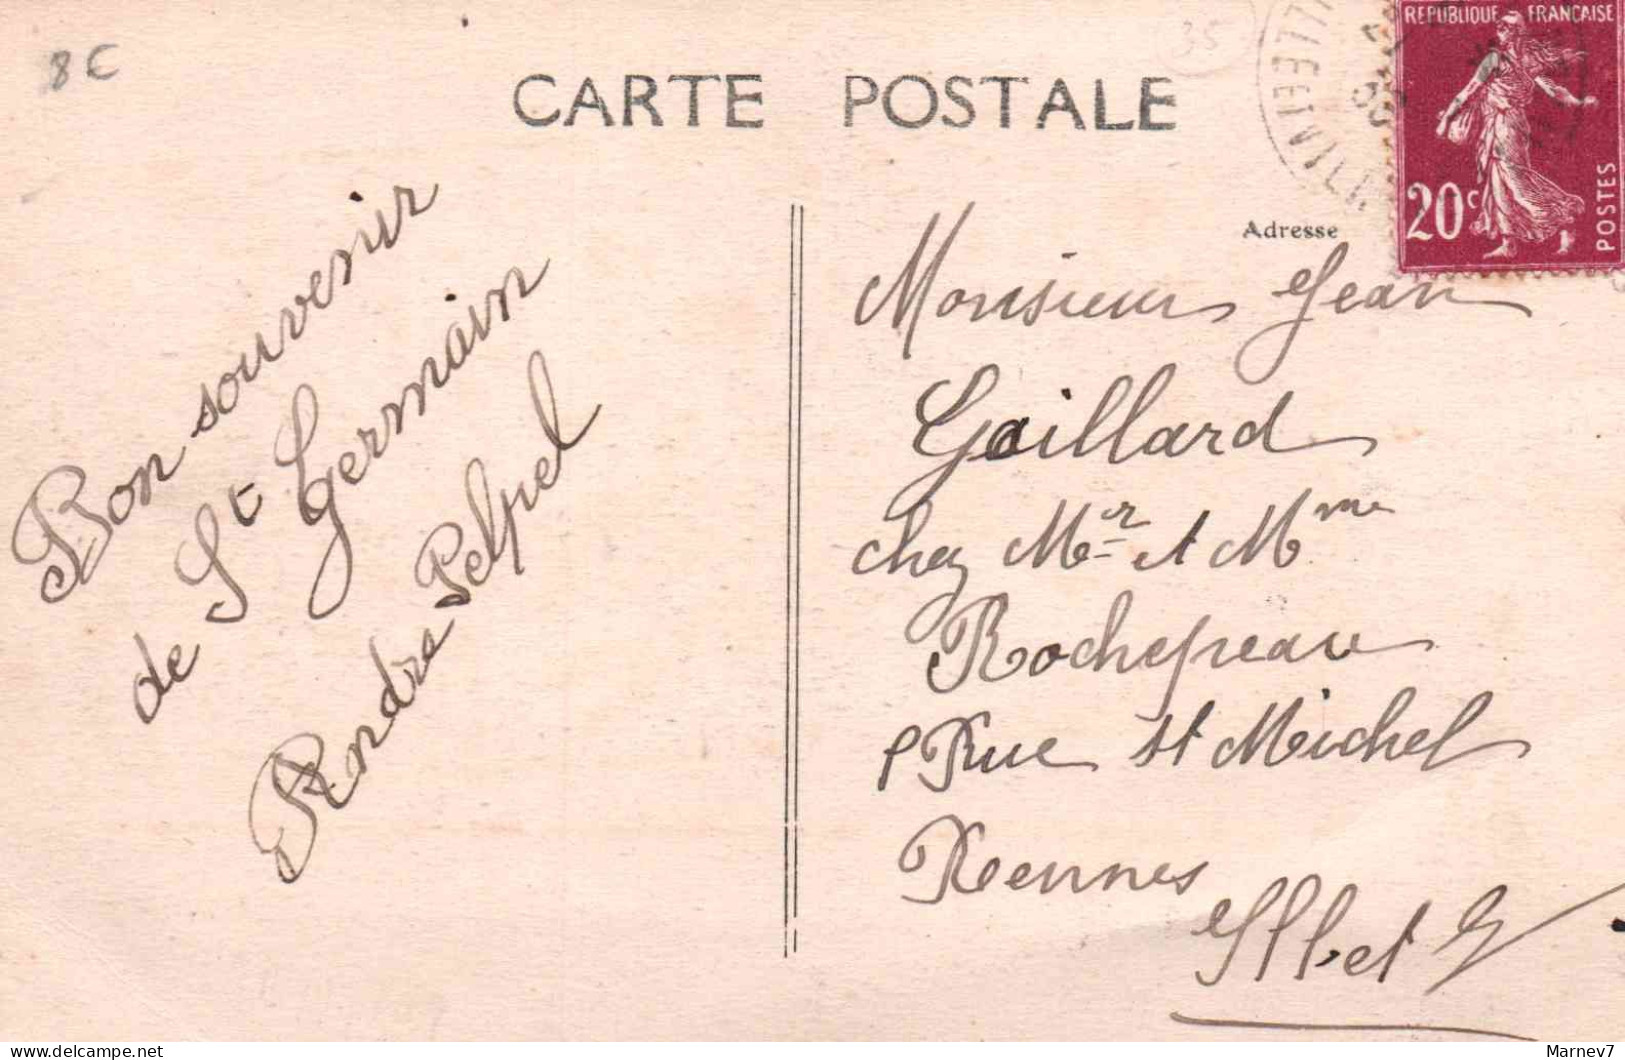 8 €
35
CARTE POSTALE
REPUBLIQUE FRANÇAISE
20c
POSTES
Bon souvenir
de St Germain
Andre Pelpel
Adresse
Monsieur Jean
Gaillard
chez Mr et Mme
Rochepeau
Rue St Michel
Rennes
Ill. et V
Marnev7